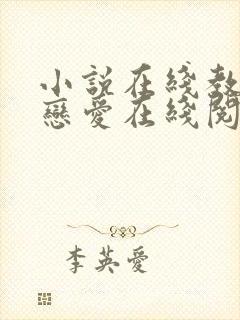 小説在綫教
戀愛在綫閱
李英愛